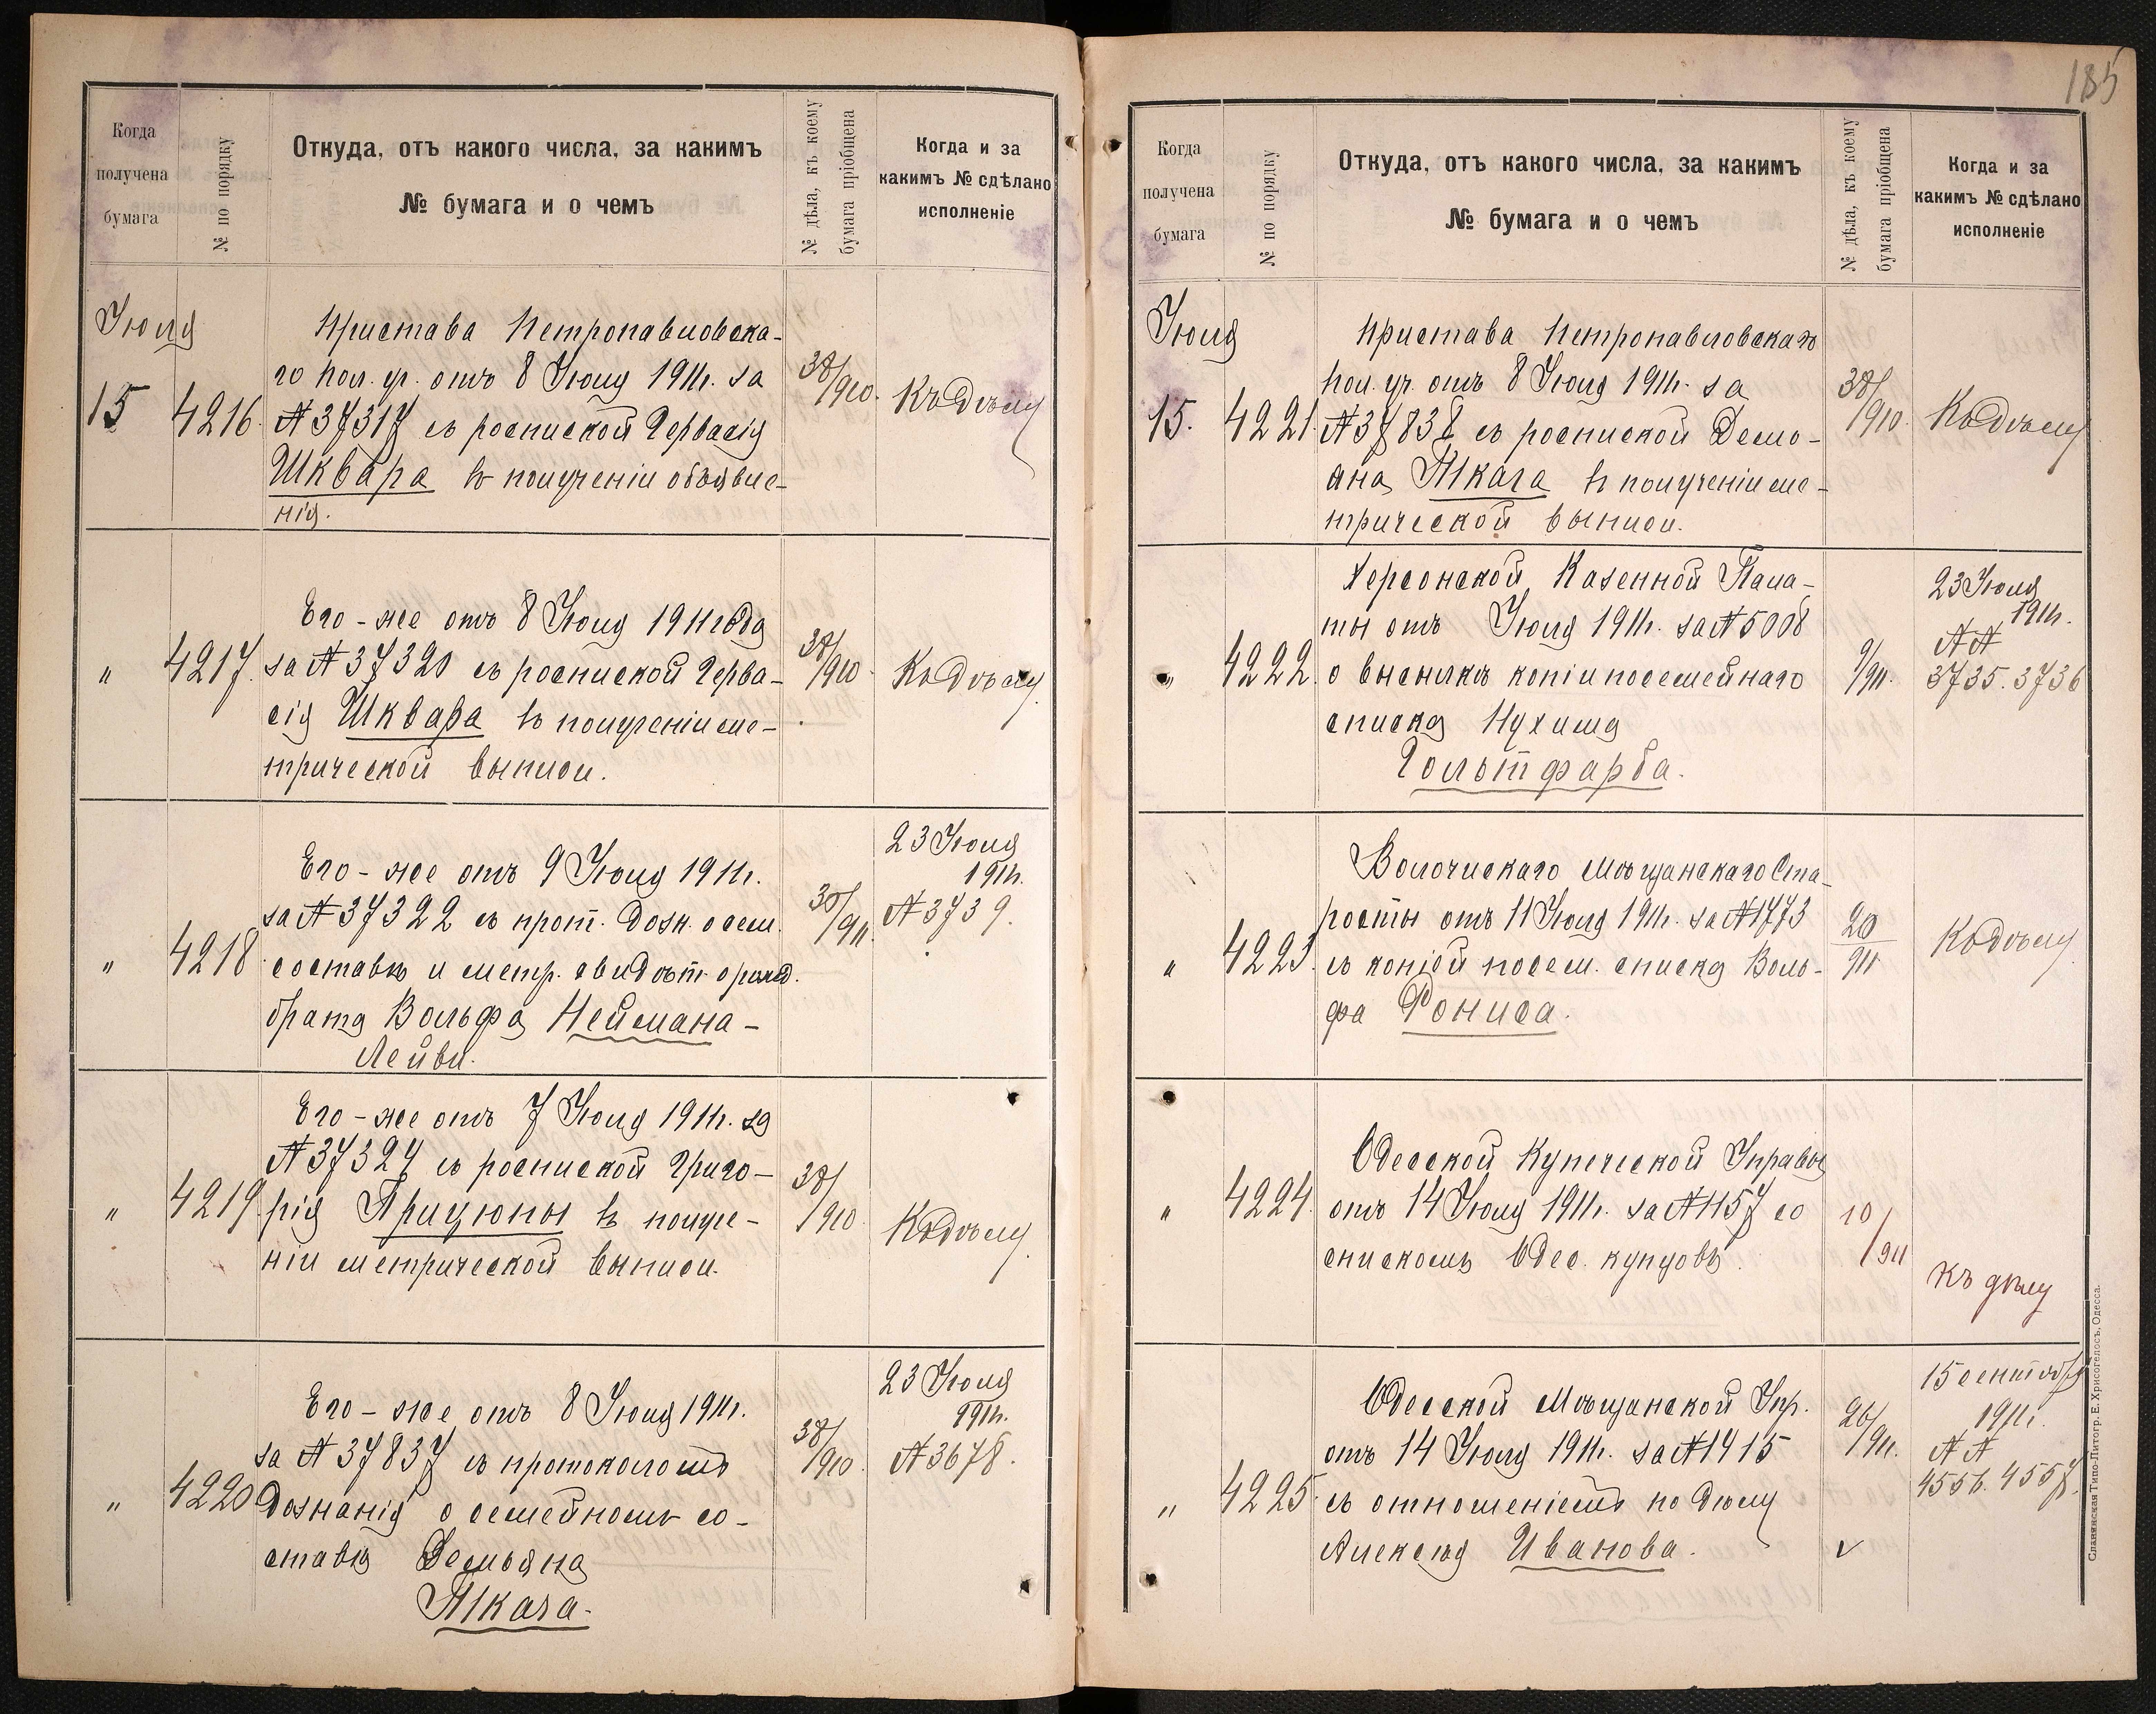 185
Когда
получена
бумага
№ по порядку
Откуда, отъ какого числа, за какимъ
№ бумага и о чемъ
№ дѣла, къ коему
бумага пріобщена
Когда и за
какимъ № сдѣлано
исполненіе
Іюля
15
4216.
Пристава Петропавловска-
го пол. уч. отъ 8 Іюля 1911г. за
№ 37317 съ роспиской Гервасія
Шквара въ полученіи объявле-
нія.
38/910.
Къ дѣлу
"
4217.
Его-же отъ 8 Іюля 1911 года
за № 37320 съ роспиской Герва-
сія Шквара въ полученіи ме-
трической выписи.
38/910.
Къ дѣлу.
"
4218
Его-же отъ 9 Іюля 1911г.
за № 37322 съ прот. дозн. о сем.
составѣ и метр. свидѣт. о рожд.
брата Вольфа Неймана-
Лейви.
30/911.
23 Іюля
1911г.
№ 3739.
"
4219.
Его-же отъ 7 Іюля 1911г. за
№ 37324 съ роспиской Григо-
рія Прицюпы въ получе-
ніи метрической выписи.
38/910.
Къ дѣлу.
"
4220
Его-же отъ 8 Іюля 1911г.
за № 37837 съ протоколомъ
дознанія о семейномъ со-
ставѣ Демьяна
Ткача.
38/910.
23 Іюля
1911г.
№ 3678.
Когда
получена
бумага
№ по порядку
Откуда, отъ какого числа, за какимъ
№ бумага и о чемъ
№ дѣла, къ коему
бумага пріобщена
Когда и за
какимъ № сдѣлано
исполненіе
Іюля
15.
4221.
Пристава Петропавловскаго
пол. уч. отъ 8 Іюля 1911г. за
№ 37838 съ роспиской Демь-
яна Ткача въ полученіи ме-
трической выписи.
38/910.
Къ дѣлу
"
4222.
Херсонской Казенной Пала-
ты отъ Іюля 1911г. за № 5008
о высылкѣ копіи посемейнаго
списка Нухима
Гольтфарба.
9/911.
23 Іюля
1911г.
№№
3735. 3736
"
4223.
Волочискаго Мѣщанскаго Ста-
росты отъ 11 Іюля 1911г. за № 1773
съ копіей посем. списка Воль-
фа Рониса.
20/911
Къ дѣлу
"
4224.
Одесской Купеческой Управы
отъ 14 Іюля 1911г. за № 1157 со
спискомъ Одес. купцовъ.
10/911
Къ дѣлу
"
4225.
Одесской Мѣщанской Упр.
отъ 14 Іюля 1911г. за № 1415
съ отношеніемъ по дѣлу
Алексѣя Иванова.
26/911.
15 сентября
1911г.
№№
4556. 4557.
Славянская Типо-Литогр. Е. Хрисогелосъ, Одесса.